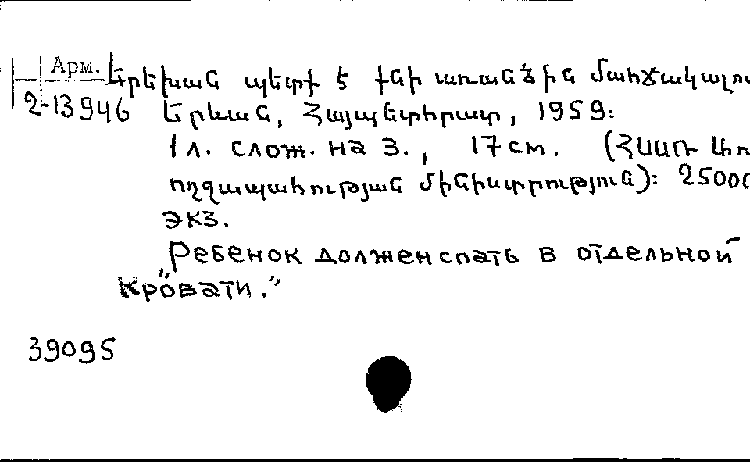 Арм.
Երեխան պետք է քնի առանձին մահճակալու
2-13946 Երևան, Հայպետհրատ, 1959:
1 л. слож. на 3., 17 см. (ՀՍՍՌ Առ
ողջապահության մինիստրություն): 25000
экз.
"Ребенок должен спать в отдельной
кровати."
39095